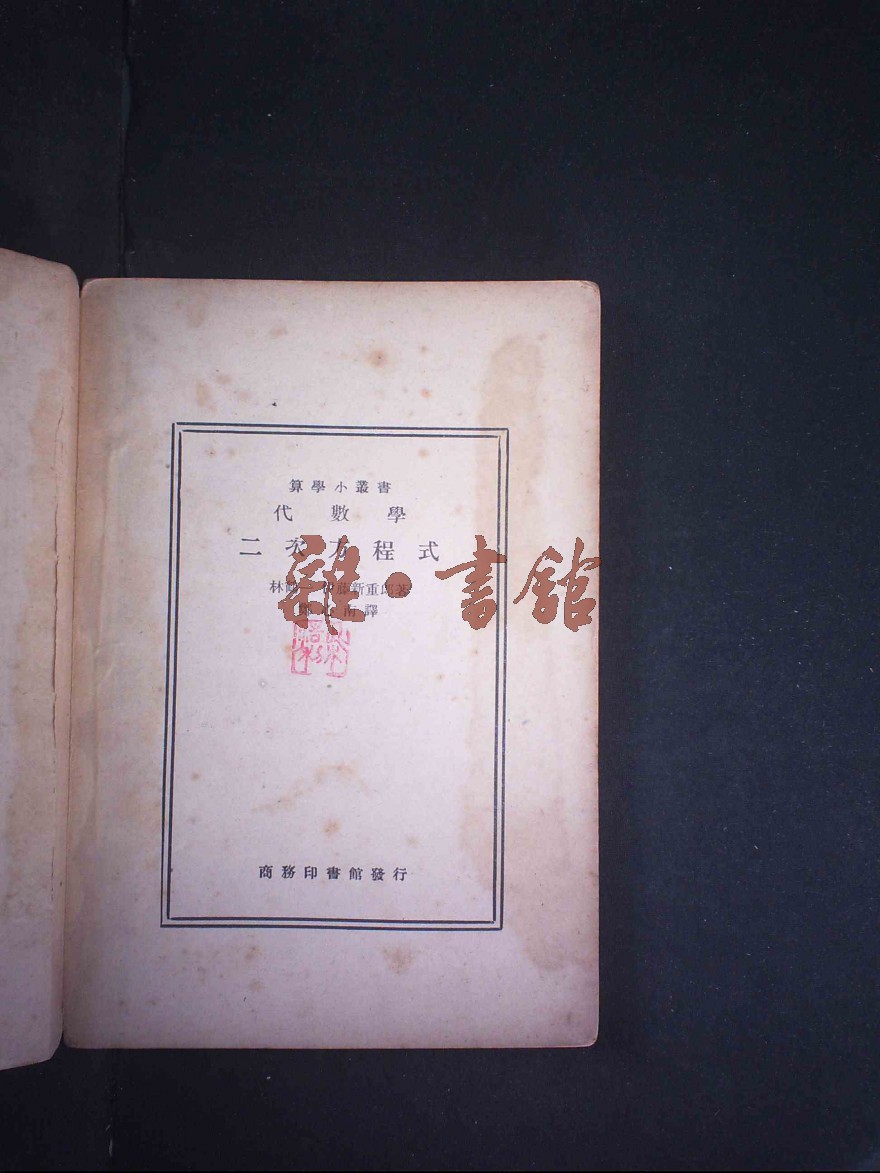 算學小叢書
代數學
二次方程式
林鶴一 伊藤新重郎著
南譯
雜·書館
商務印書館發行